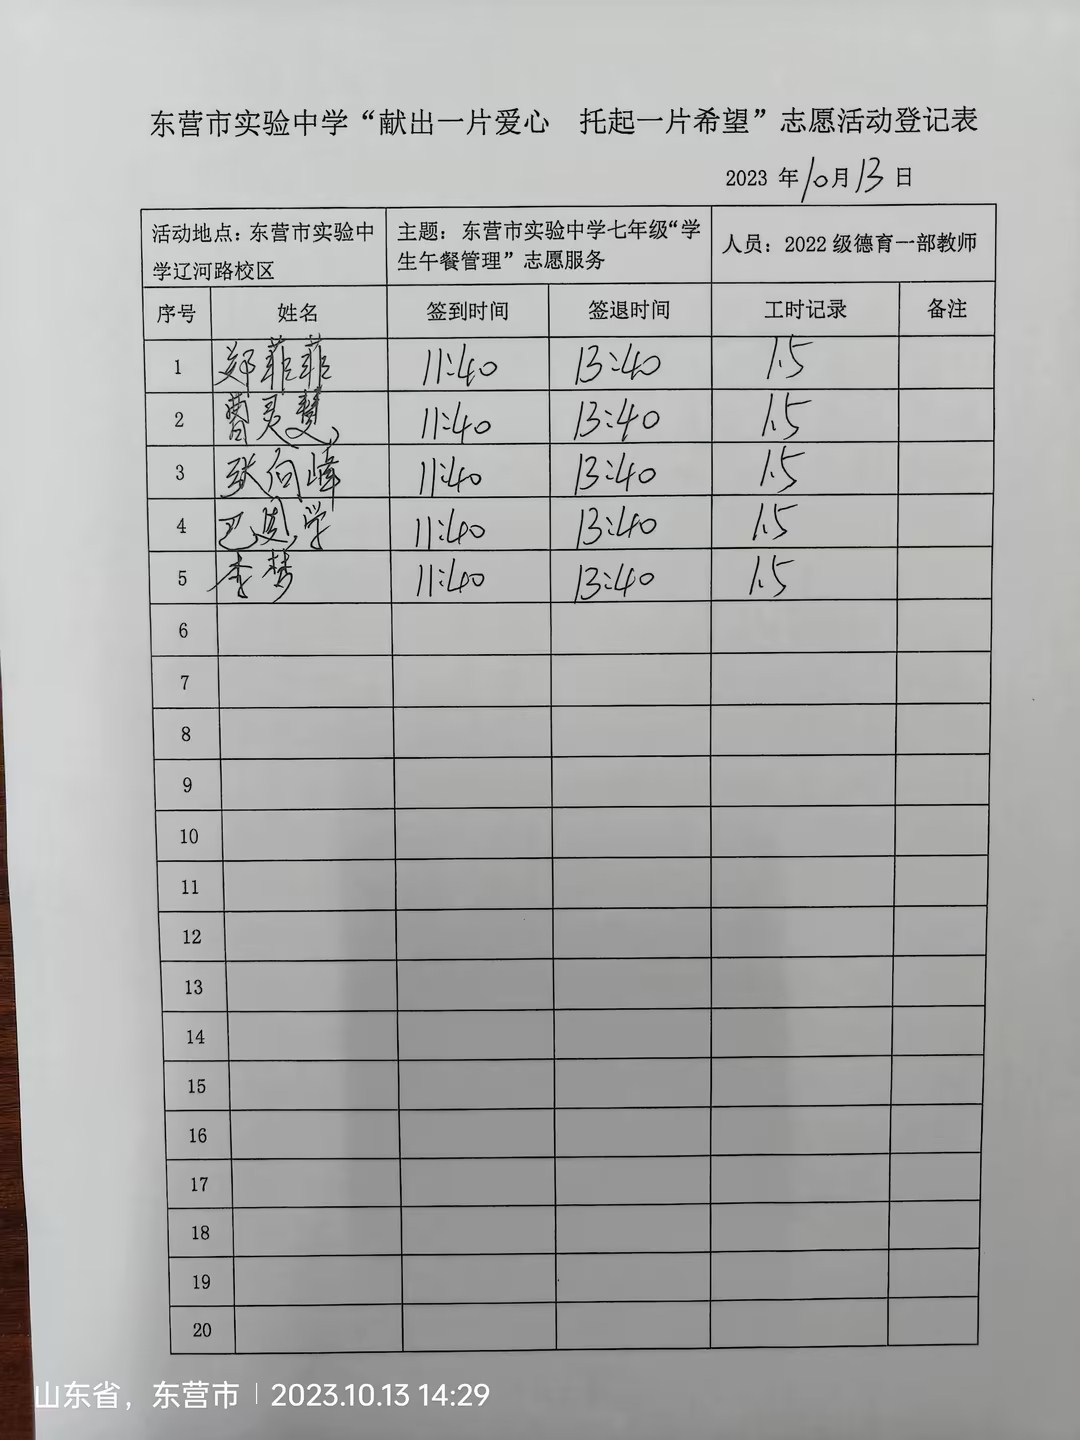 东营市实验中学“献出一片爱心 托起一片希望”志愿活动登记表
2023 年10月13日
活动地点：东营市实验中学辽河路校区 主题：东营市实验中学七年级“学生午餐管理”志愿服务 人员：2022 级德育一部教师
序号 姓名 签到时间 签退时间 工时记录 备注
1 郑菲菲 11:40 13:40 1.5
2 曹灵 11:40 13:40 1.5
3 张向峰 11:40 13:40 1.5
4 巴 学 11:40 13:40 1.5
5 李梦 11:40 13:40 1.5
6
7
8
9
10
11
12
13
14
15
16
17
18
19
20
山东省，东营市 | 2023.10.13 14:29